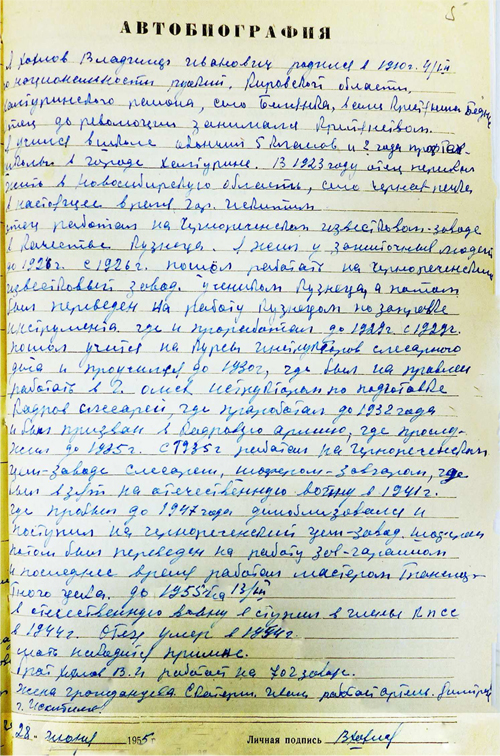 АВТОБИОГРАФИЯ
Я Хохлов Владимир Иванович родился в 1910г. 4/III
по национальности русский, Кировской области,
Халтуринского района, село в семье
отец до революции занимался
Я учился в школе окончил 5 классов и 2 года
школы в городе Халтурине. В 1923 году отец переехал
жить в Новосибирскую область, село Черная речка
в настоящее время гор. Искитим
отец работал на Чернореченском известковом-заводе
в качестве кузнеца. А жил у зажиточных людей
до 1926г. с 1926г. пошол работать на Чернореченский
известковый завод. учеником кузнеца, а потом
был переведен на работу кузнецом по заправке
инструмента где и проработал до 1929г. с 1929г.
пошол учится на курсы инструкторов слесарного
дела и проучился до 1930г, где был направлен
работать в г. Омск иструктором по подготовке
кадров слесарей, где проработал до 1932 года
и был призван в кадровую армию, где прослу-
жил до 1935г. с 1935г работал на Чернореченском
цем-заводе слесарем, шофером-завгаром, где
был взят на отечественную войну в 1941г.
где пробыл до 1947 года демобилизовался и
поступил на Чернореченский цем-завод. шофером
потом был переведен на работу зав-гаражом
и последнее время работал мастером Транспор-
тного цеха. до 1955г 13/III
в отечественную войну вступил в члены КПСС
в 1944г. Отец умер в 1944г.
мать находится при мне.
Брат Хохлов В.И. работает на 702 заводе.
жена Екатерин. Иван. работает артель.
г. Искитим.
28 - июня 1955г. Личная подпись